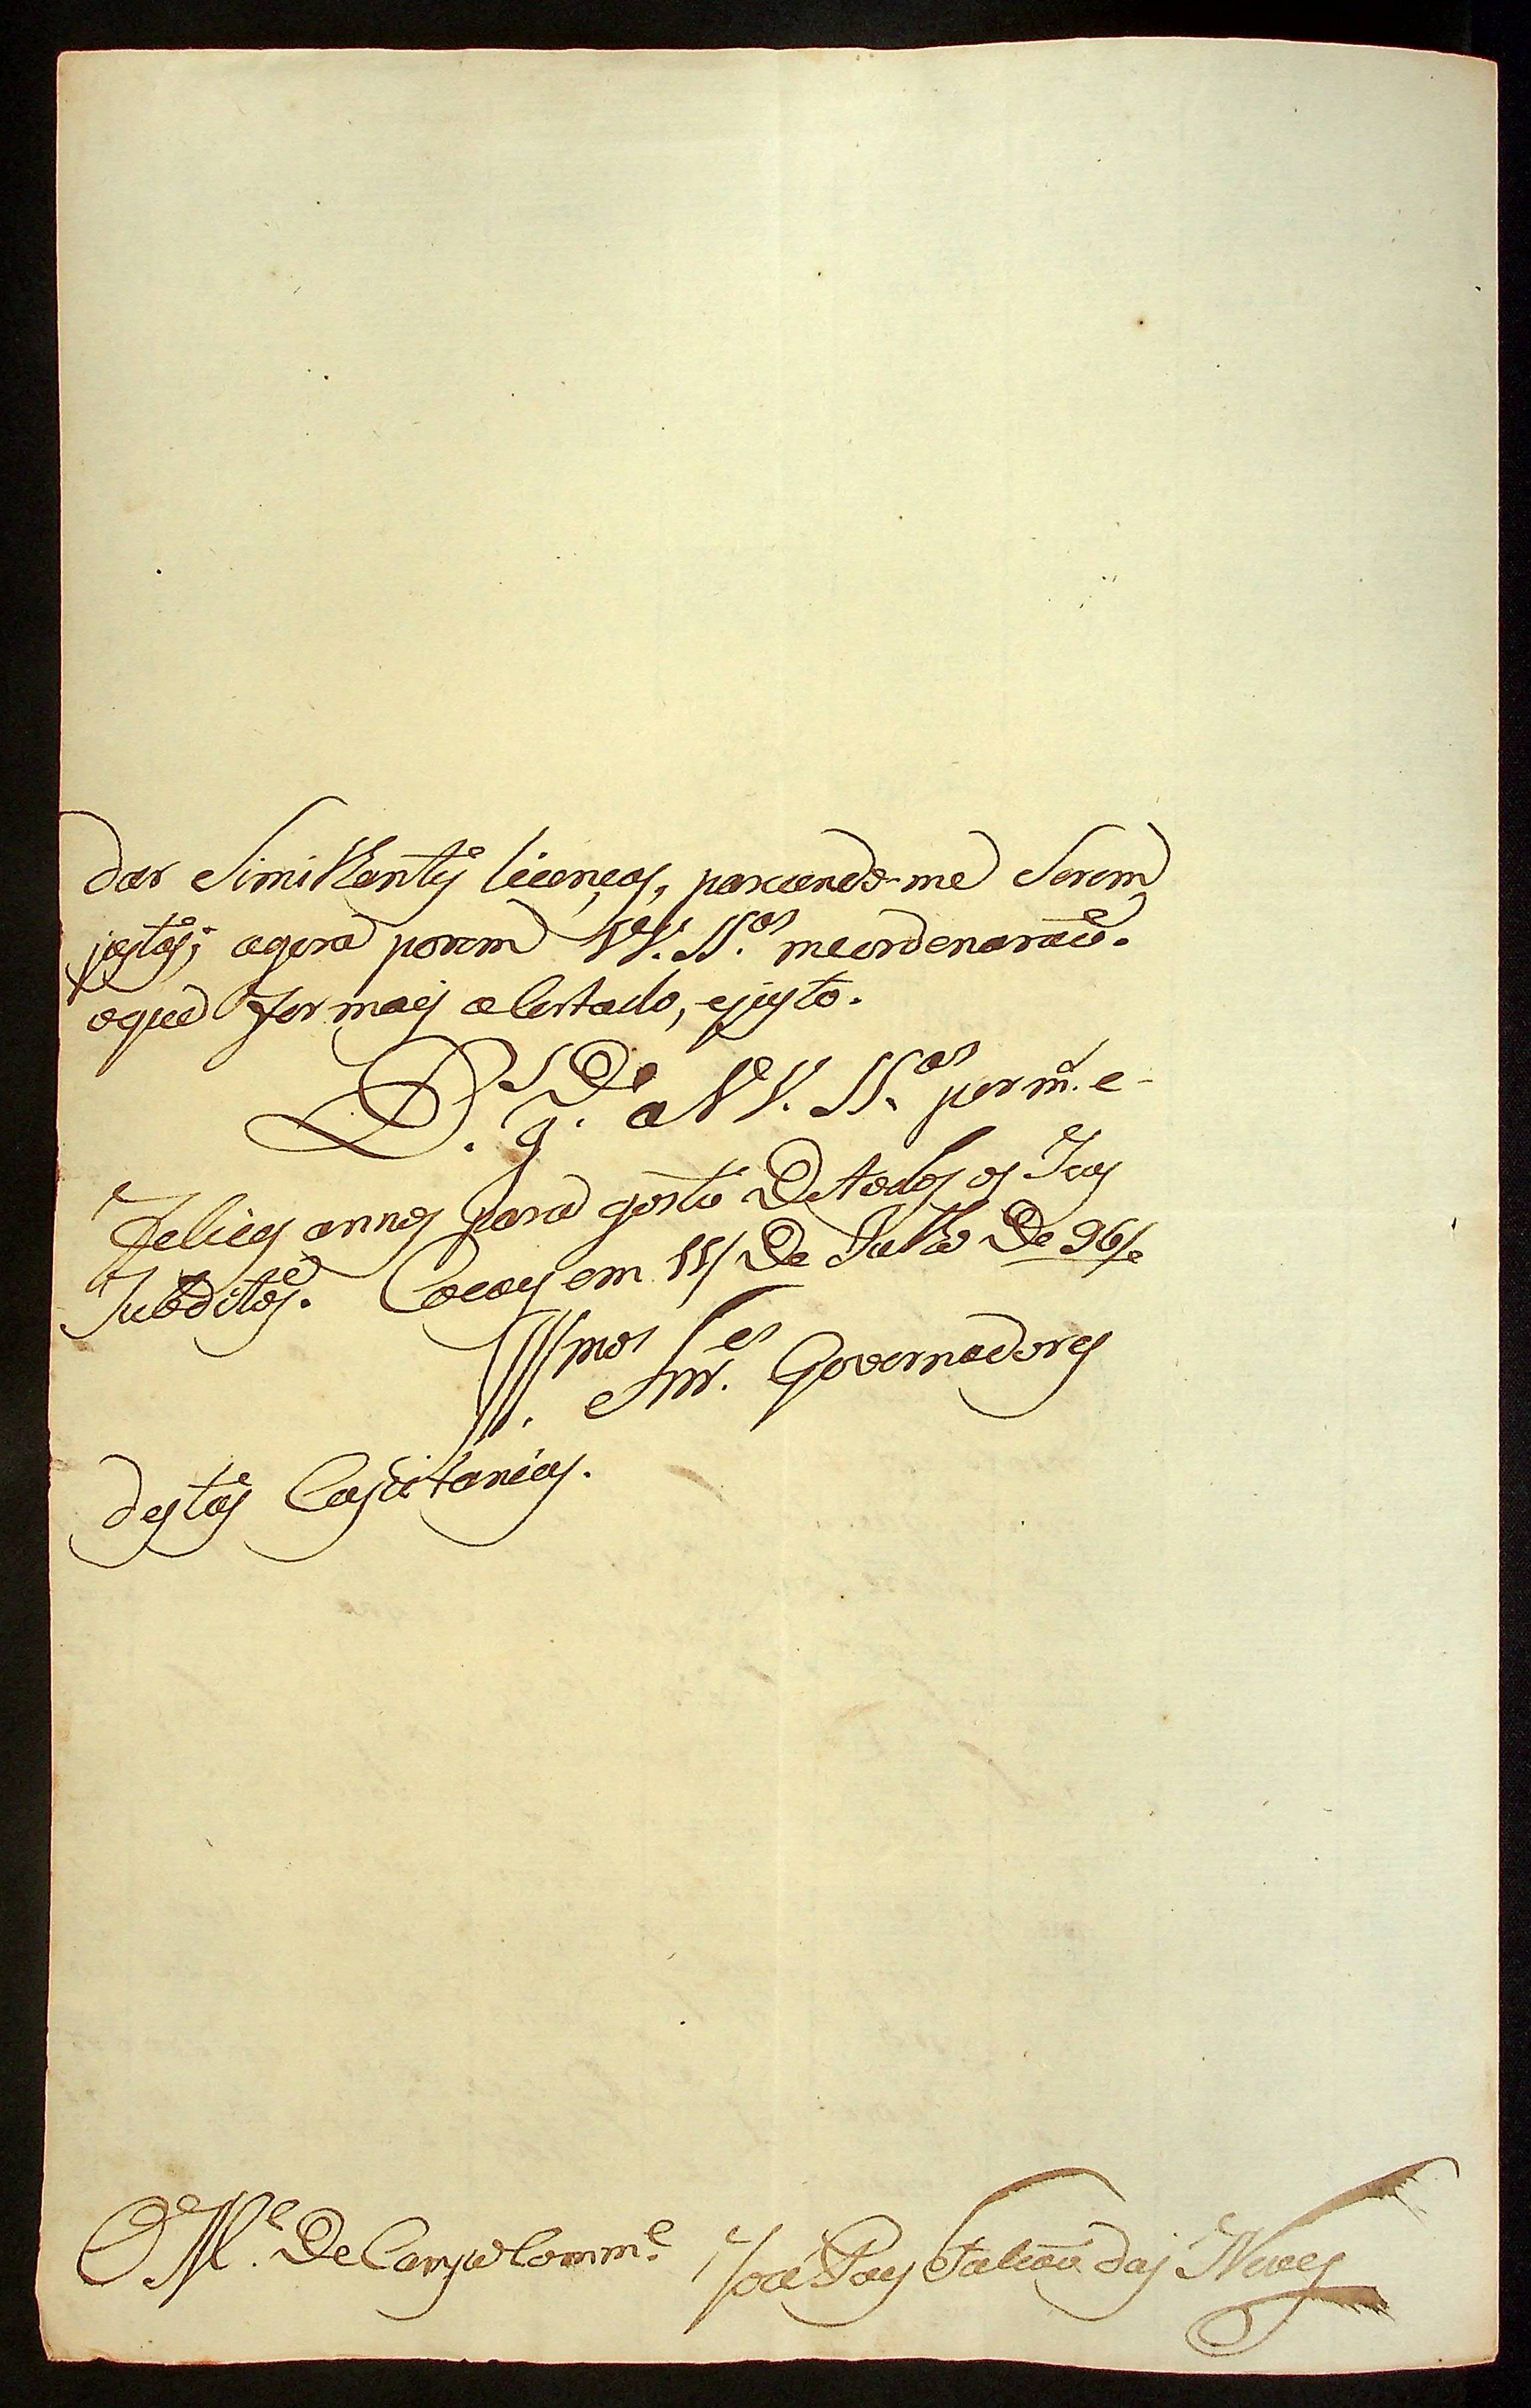 dar Similhantes licenças, parcendo-me Serem
justas; agora porem VV. SS.as meordenaraõ.
oque for mais a certado, ejusto.
D.s g.de a VV. SS.as por m.s e-
felices annos para gosto Detodos os Seus
Subditos. Cocoes em 11/ De Julho De 96/e
Ill.mos Snr.es Governadores
destas Capitanias.
O M.e De Campo Comm.e José Paes Falcaõ das Neves